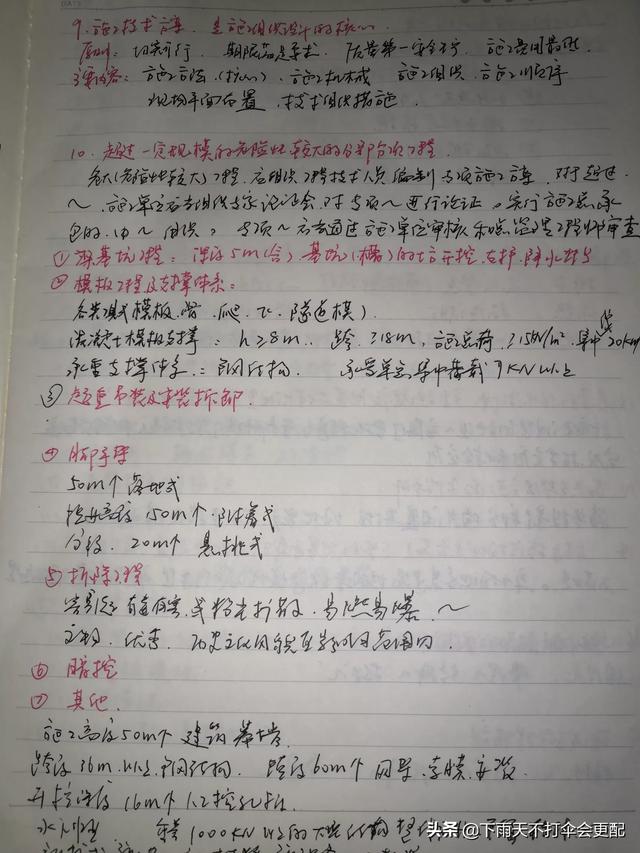 9. 施工技术方案, 是施工组织设计的核心
原则: 切实可行 期限满足要求 质量第一安全生产 施工费用最低
主要内容: 施工方法(核心)、施工机械 施工组织、施工顺序
现场平面布置 技术组织措施
10. 超过一定规模的危险性较大的分部分项工程
危大(危险性较大)工程, 应组织工程技术人员编制专项施工方案, 对于超过
～, 施工单位应当组织专家论证会对专项～进行论证。实行施工总承
包的, 由～组织, 专项～应当通过施工单位审核和总监理工程师审查
① 深基坑工程: 深度5m(含)基坑(槽)的土方开挖、支护、降水
② 模板工程及支撑体系:
各类模板, 滑、爬、飞、隧道模)
混凝土模板支撑: h≥8m. 跨≥18m, 施工总荷≥15kN/m² 集中 20kN
承重支撑体系: 钢结构 承受单点集中荷载7KN以上
③ 起重吊装及安装拆卸
④ 脚手架
50m↑落地式
提升高度150m↑附着式
分段 20m↑ 悬挑式
⑤ 拆除工程
有毒有害, 易燃易爆～
文物、优秀 历史文化风貌区 范围内
⑥ 暗挖
⑦ 其他
施工高度50m↑建筑幕墙
跨度36m以上钢结构. 跨度60m↑网架、索膜安装
开挖深度16m↑人工挖孔桩
重1000KN以上的大型结构整体
头条 @下雨天不打伞会更配